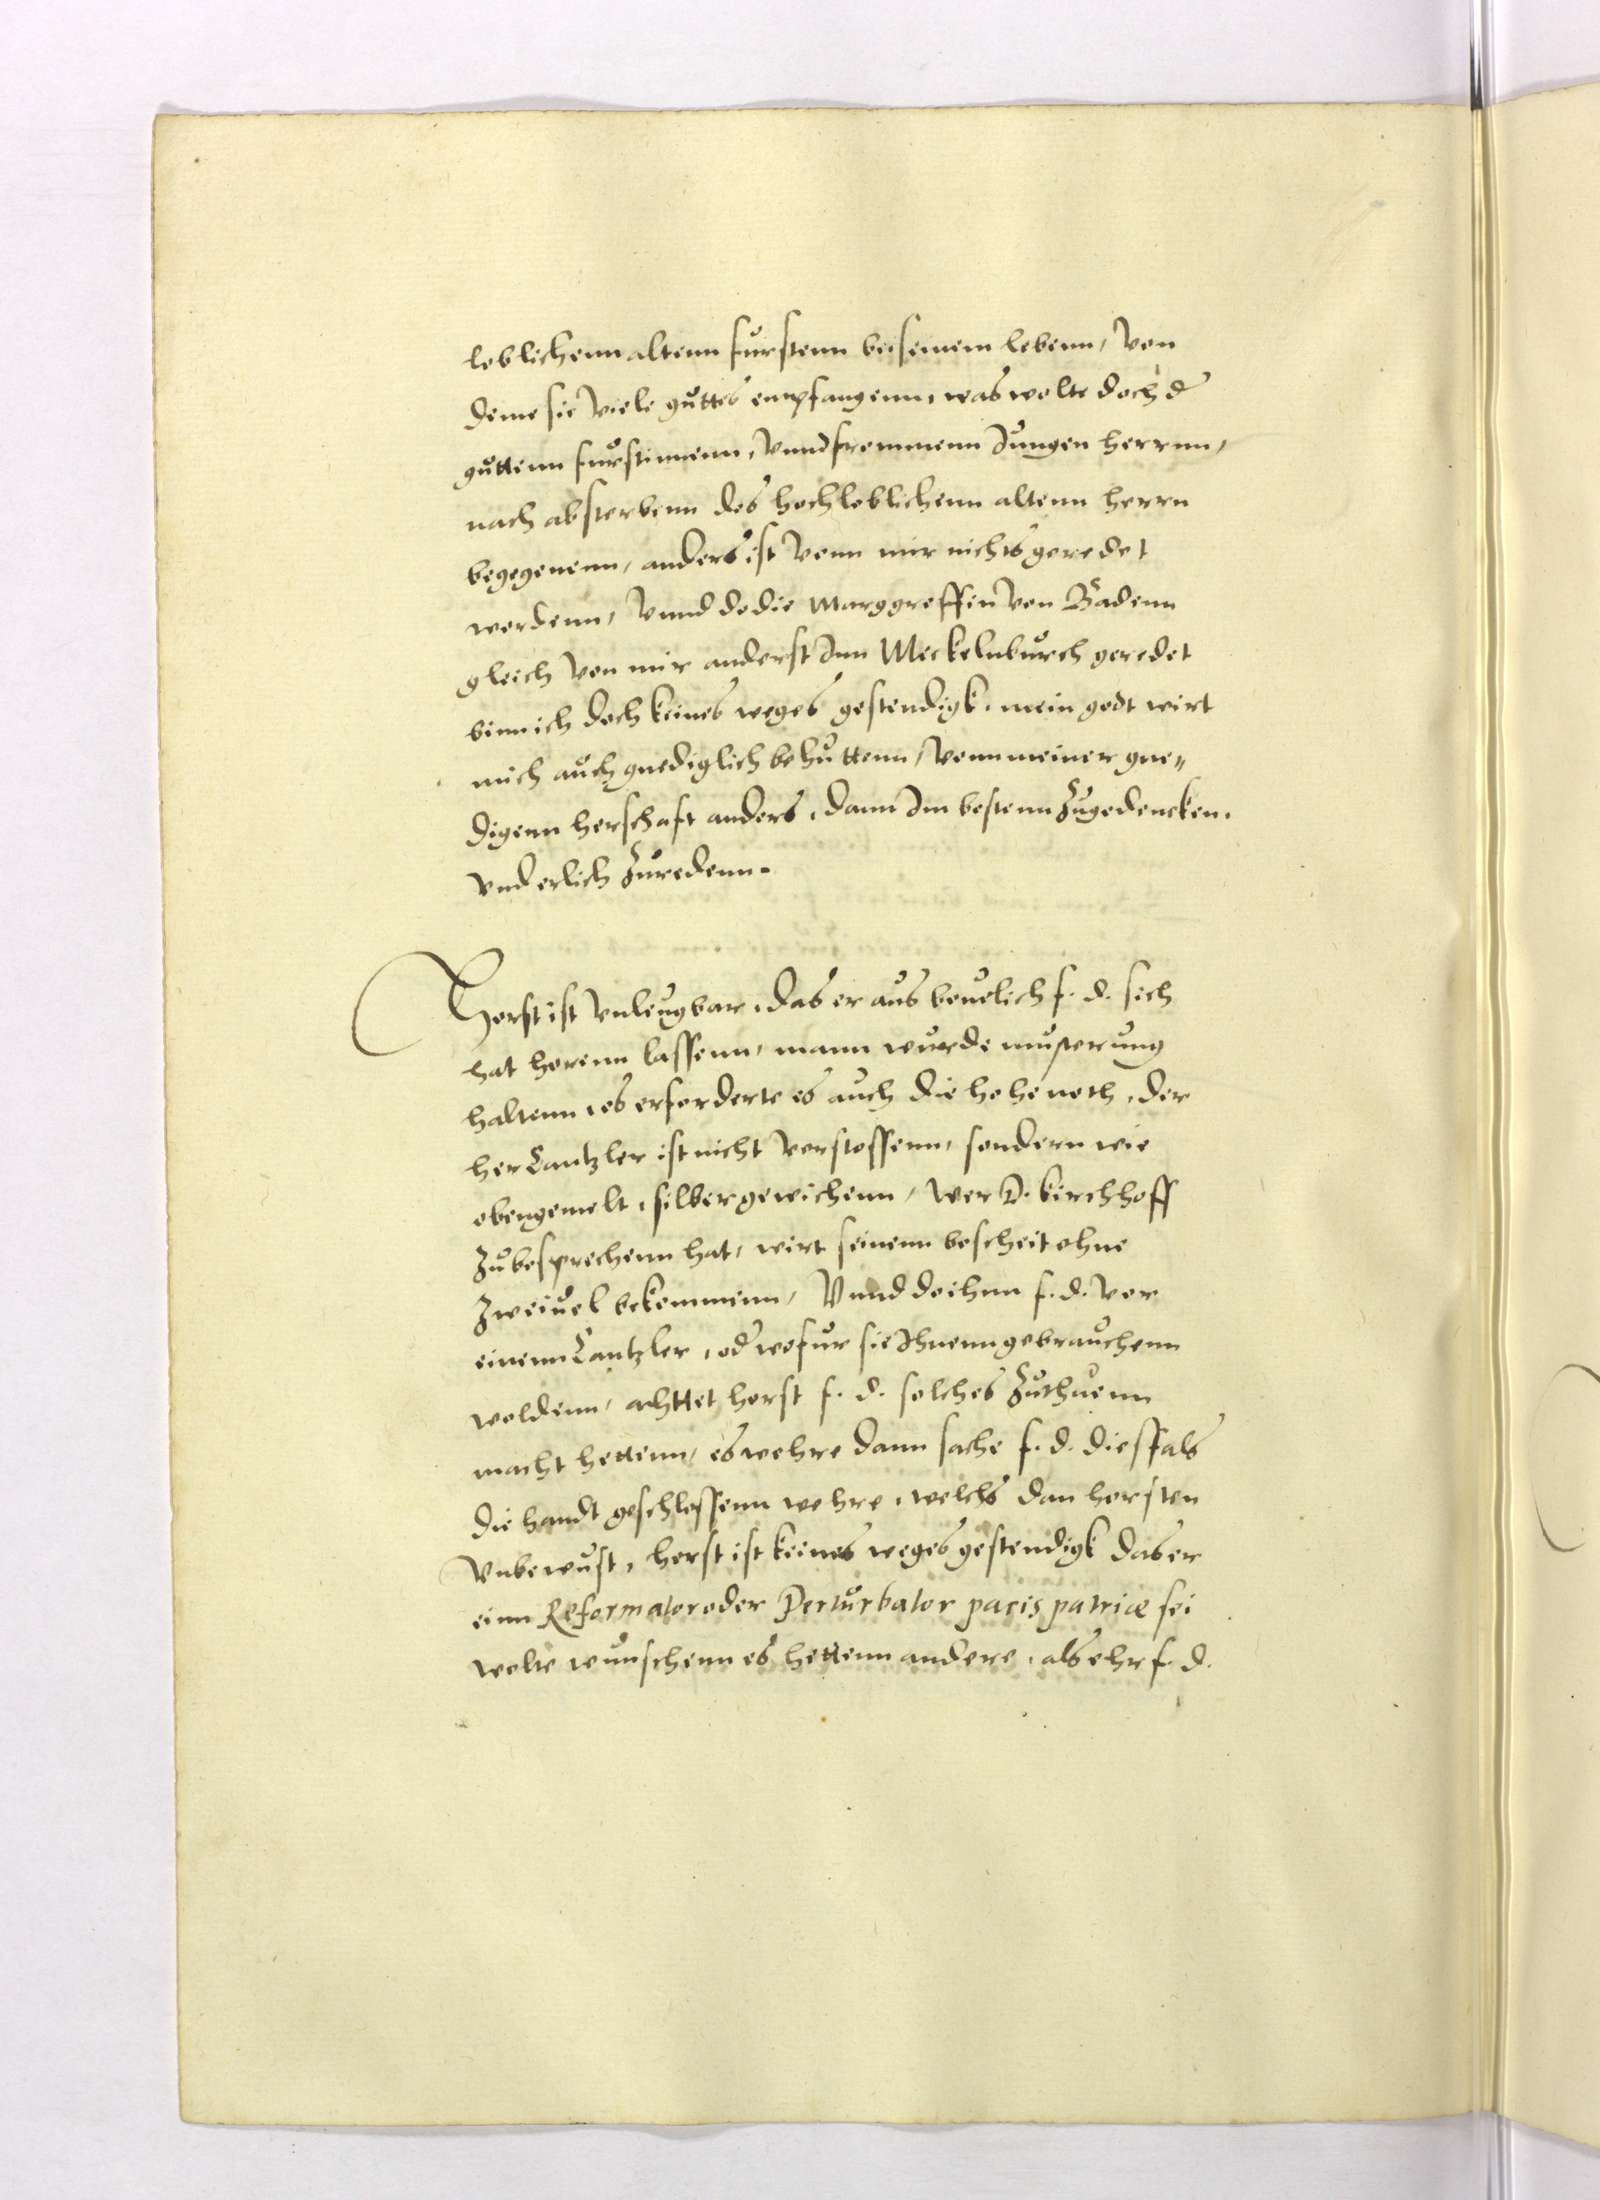 loblichenn altenn furstenn bei seinem lebenn, von
deme sie viele guttes empfangenn, was wolte doch d
guttenn furstinnenn, vnnd frommenn Jungen herrnn,
nach absterbenn des hochloblichenn altenn herrn
begegenenn, anders ist vonn mir nichts geredet
wordenn, vnnd do die Marggreffin von Badenn
gleich von mir anderst Inn Meckelnburch geredet
binn ich doch keines weges gestendigk, mein godt wirt
mich auch gnediglich behuttenn, vonn meiner gne„
digenn herschaft anders, dann Im bestenn zugedencken,
vnd erlich zuredenn.
Horst ist vnleugbar, das er aus beuelich f. d. sich
hat horenn lassenn, mann wurde musterung
haltenn, es erforderte es auch die hohe noth, der
her Cantzler ist nicht verstossenn, sondern wie
obengemelt, silber gewichenn, wer D. Kirchhoff
zubesprechenn hat, wirt seinenn bescheit ohne
zweiuel bekommenn, Vnnd do ihnn f. d. vor
einenn Cantzler, od wofur sie Ihnenn gebrauchenn
woldenn, achttet horst f. d. solches zuthuenn
macht hettenn, es wehre dann sache f. d. diessfals
die handt geschlossenn wehre, welchs dan horsten
vnbewust, horst ist keines weges gestendigk das er
einn Reformator oder Perturbator pacis patriæ sei
wolte wunschenn es hettenn andere, als ehr f. d.